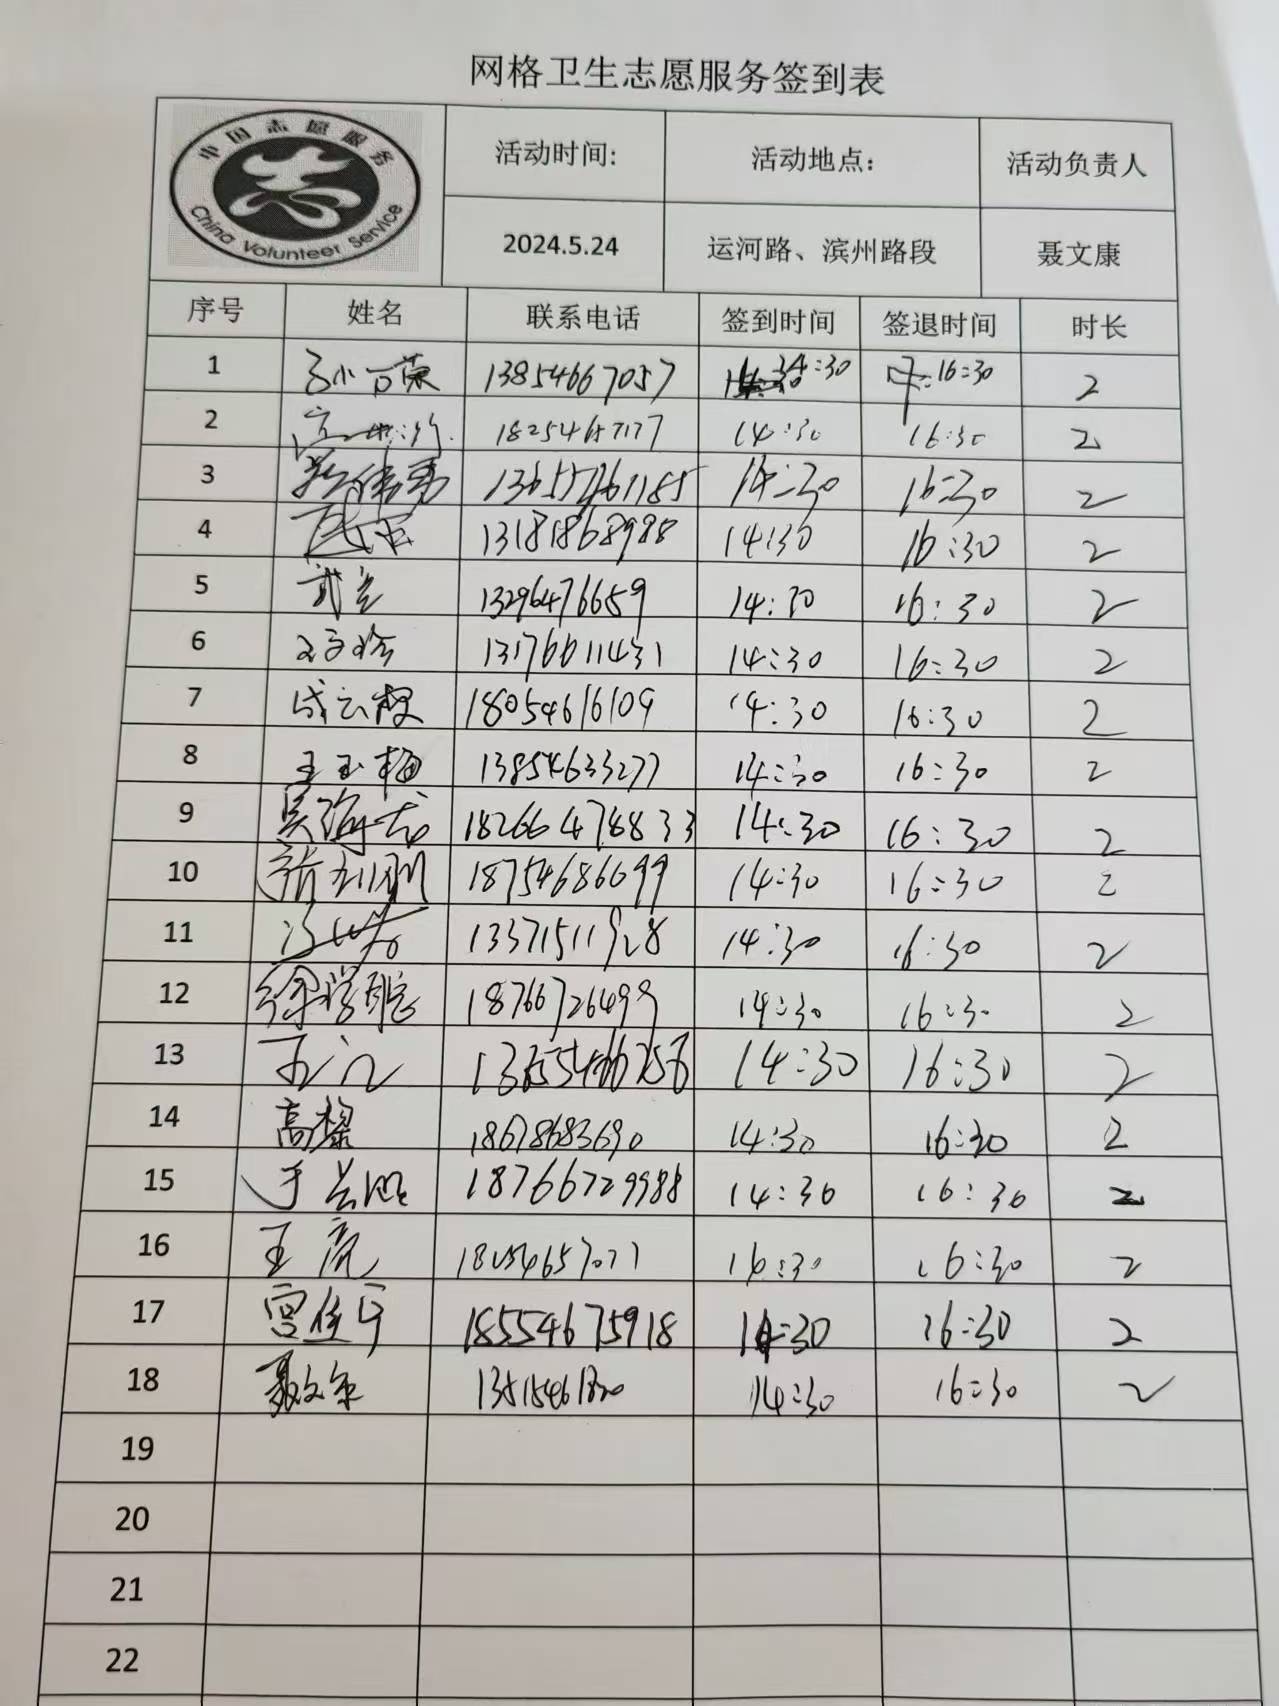 网格卫生志愿服务签到表
中国志愿服务
China Volunteer Service
活动时间: 活动地点: 活动负责人
2024.5.24 运河路、滨州路段 聂文康
序号 姓名 联系电话 签到时间 签退时间 时长
1 13854667057 14:30 16:30 2
2 14:30 16:30 2
3 14:30 16:30 2
4 13181868988 14:30 16:30 2
5 武 13296476659 14:30 16:30 2
6 13176611431 14:30 16:30 2
7 18054616109 14:30 16:30 2
8 王玉梅 13854633277 14:30 16:30 2
9 吴海龙 18266478833 14:30 16:30 2
10 18754686699 14:30 16:30 2
11 14:30 16:30 2
12 徐学聪 18766726499 14:30 16:30 2
13 14:30 16:30 2
14 高黎 18678683690 14:30 16:30 2
15 18766729988 14:30 16:30 2
16 王 16:30 2
17 宫 18554675918 14:30 16:30 2
18 聂文康 14:30 16:30 2
19
20
21
22